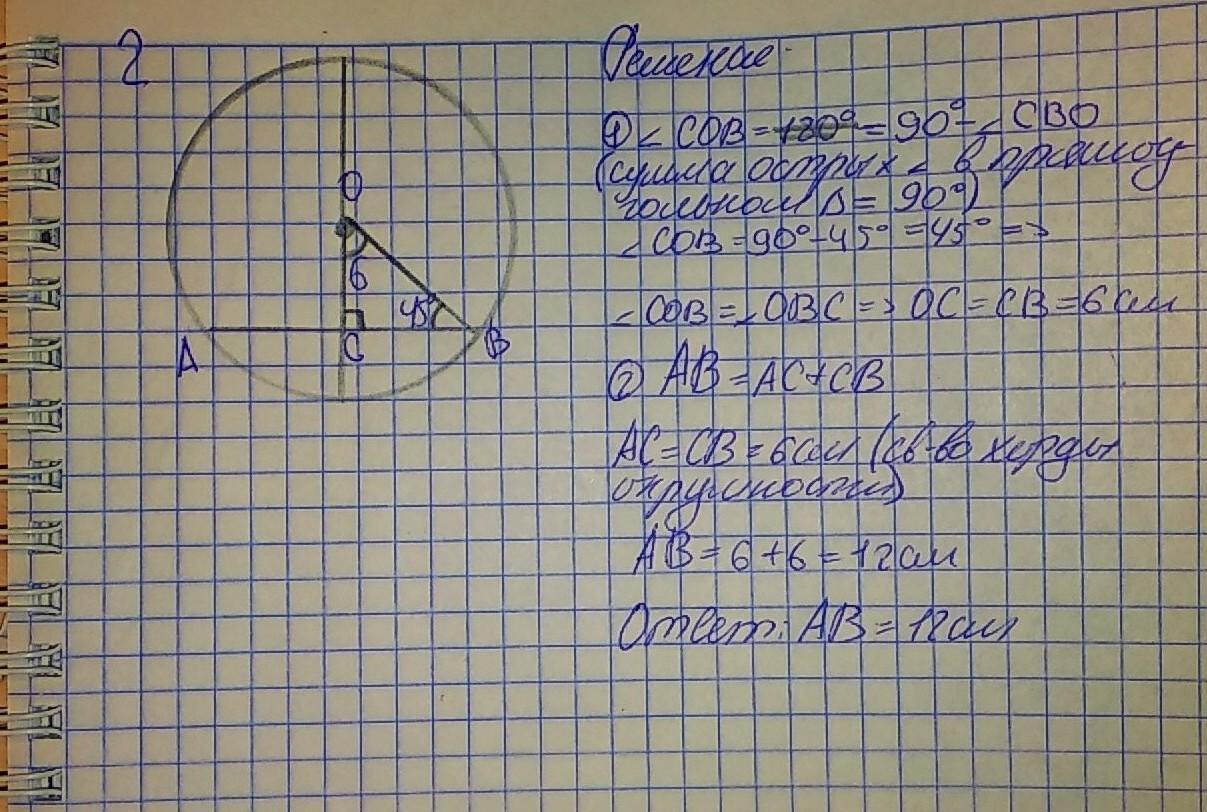 2
Решение
① ∠ COB = 180° = 90° - ∠ CBO
(сумма острых ∠ в прямоу
гольном Δ = 90°)
∠ COB = 90° - 45° = 45° =>
∠ COB = ∠ OBC => OC = CB = 6 см
② AB = AC + CB
AC = CB = 6 см (св-во хорды
окружности)
AB = 6 + 6 = 12 см
Ответ: AB = 12 см
O
6
45°
A
C
B